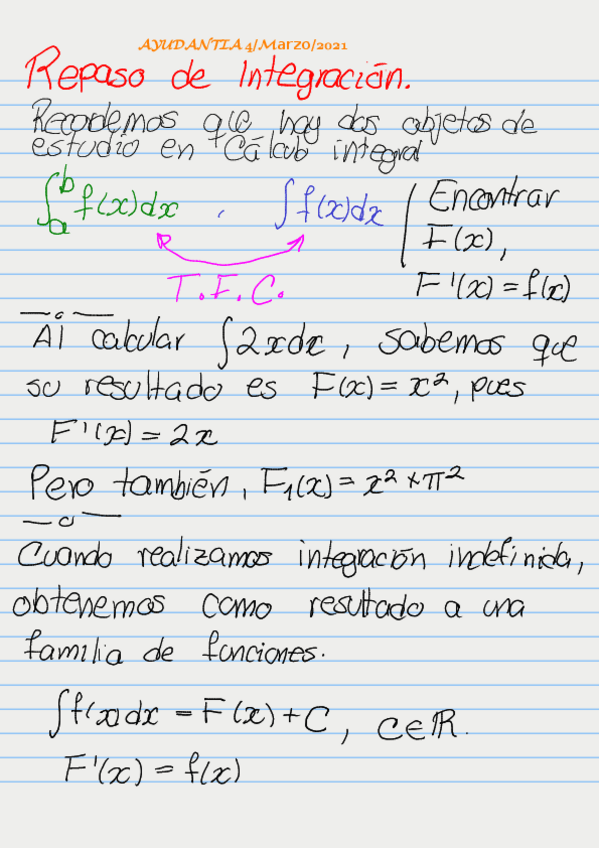 AYUDANTIA 4/Marzo/2021
Repaso de Integración.
Recordemos que hay dos objetos de
estudio en Cálculo integral
∫ₐᵇ f(x)dx , ∫f(x)dx | Encontrar
F(x),
T.F.C. F'(x) = f(x)
Al calcular ∫2xdx, sabemos que
su resultado es F(x) = x², pues
F'(x) = 2x
Pero también, F₁(x) = x² + π²
Cuando realizamos integración indefinida,
obtenemos como resultado a una
familia de funciones.
∫f(x)dx = F(x) + C, C∈ℝ.
F'(x) = f(x)